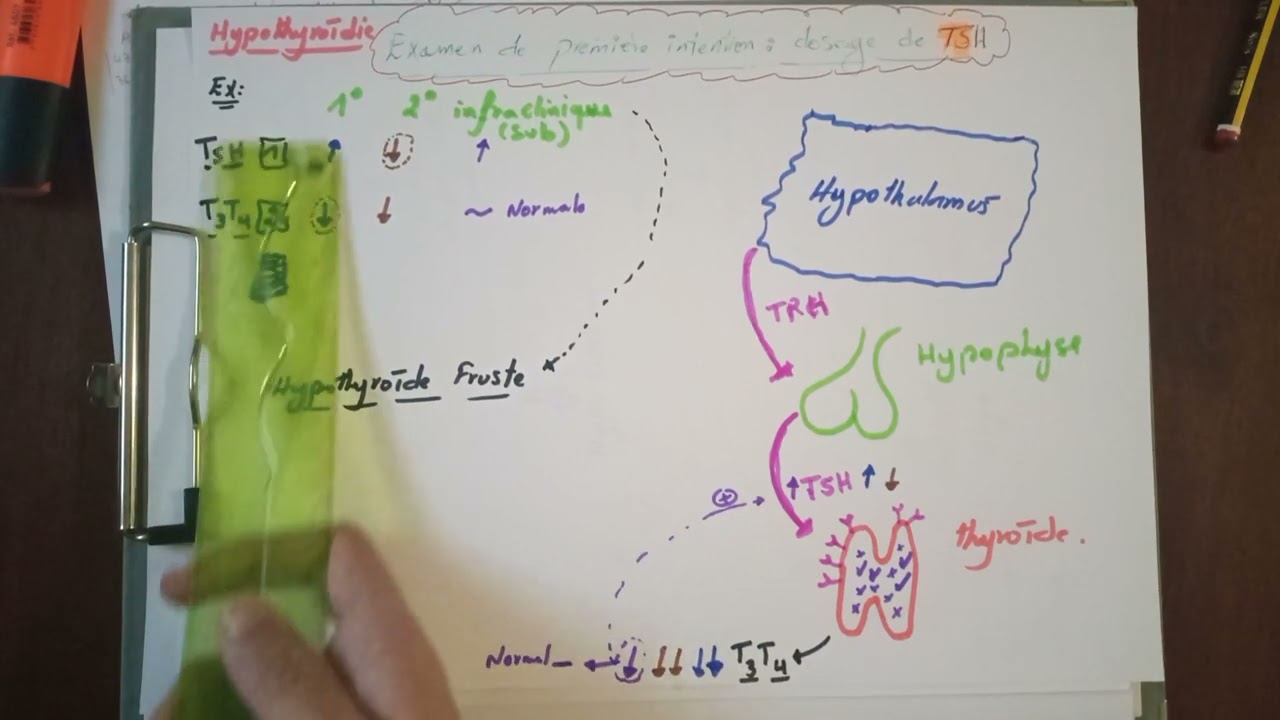 Hypothyroïdie
Examen de première intention : dosage de TSH
Ex:
1° 2° infraclinique
(sub)
TSH 1 ↑ ↓ ↑
T3T4 2 ↓ ↓ ~ Normale
Hypothyroïde Fruste
Hypothalamus
TRH
Hypophyse
⊕ ↑TSH ↑ ↓
thyroïde.
Normal ← ↓ ↓↓ ↓↓ T3T4